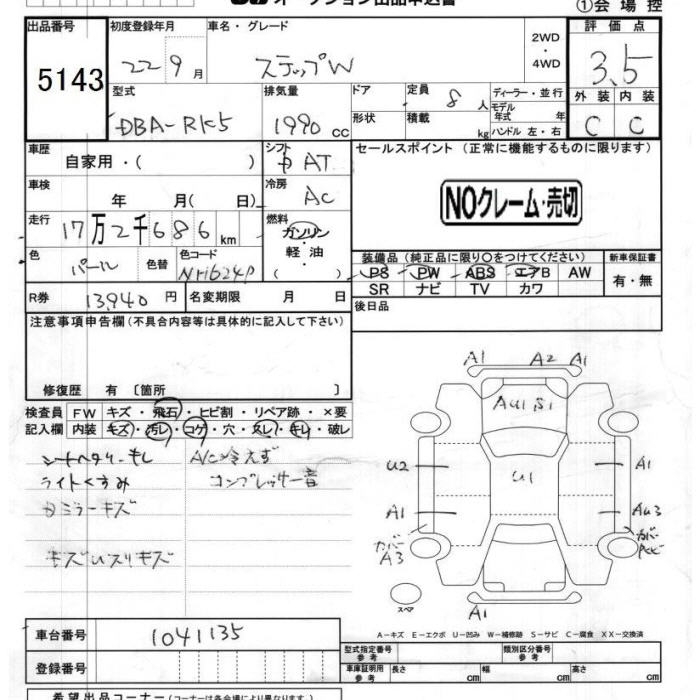 オークション出品申込書
①会場控
出品番号
5143
初度登録年月
22 9 月
車名・グレード
ステップW
2WD
・
4WD
評価点
3.5
型式
DBA-RK5
排気量
1990 cc
ドア
形状
定員
8 人
積載
kg
ディーラー・並行
モデル
年式 年
ハンドル 左・右
外装
内装
C
C
車歴
自家用・( )
シフト
AT
セールスポイント (正常に機能するものに限ります)
車検
年 月( 日)
冷房
AC
NOクレーム・売切
走行
17万2千686 km
燃料
ガソリン
・
軽油
( )
色
パール
色替
色コード
NH624P
装備品 (純正品に限り○をつけてください)
PS PW ABS エアB AW
SR ナビ TV カワ
新車保証書
有・無
R券
13,940 円
名変期限 月 日
後日品
注意事項申告欄 (不具合内容等は具体的に記入して下さい)
修復歴 有 〔箇所 〕
検査員
記入欄
FW キズ・飛石・ヒビ割・リペア跡・×要
内装 キズ・汚レ・コゲ・穴・スレ・キレ・破レ
ライトくすみ
ミラーキズ
A/C冷えず
コンプレッサー音
A1
A2
A1
AU1,S1
U2
U1
A1
A1
AU3
カバー
A3
カバー
A1
スペア
A-キズ E-エクボ U-凹み W-補修跡 S-サビ C-腐食 XX-交換済
車台番号
1041135
登録番号
型式指定番号
参考
類別区分番号
参考
車庫証明用
参考
長さ cm
幅 cm
高さ cm
希望出品コーナー (コーナーは各会場により異なります。)